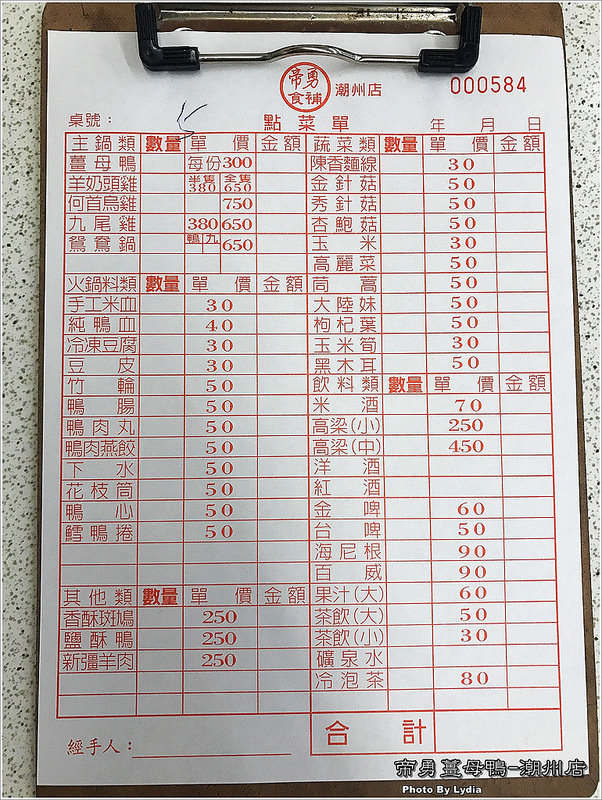 帝勇食補 潮州店 000584
桌號： 點菜單 年 月 日
主鍋類 數量 單價 金額 蔬菜類 數量 單價 金額
薑母鴨 每份300 陳香麵線 30
羊奶頭雞 半隻380 全隻650 金針菇 50
何首烏雞 750 秀針菇 50
九尾雞 380 650 杏鮑菇 50
鴛鴦鍋 鴨九 650 玉米 30
高麗菜 50
火鍋料類 數量 單價 金額 茼蒿 50
手工米血 30 大陸妹 50
純鴨血 40 枸杞葉 50
冷凍豆腐 30 玉米筍 30
豆皮 30 黑木耳 50
竹輪 50 飲料類 數量 單價 金額
鴨腸 50 米酒 70
鴨肉丸 50 高梁(小) 250
鴨肉燕餃 50 高梁(中) 450
下水 50 洋酒
花枝筒 50 紅酒
鴨心 50 金啤 60
鱈鴨捲 50 台啤 50
海尼根 90
百威 90
其他類 數量 單價 金額 果汁(大) 60
香酥斑鳩 250 茶飲(大) 50
鹽酥鴨 250 茶飲(小) 30
新疆羊肉 250 礦泉水
冷泡茶 80
經手人： 合計
帝勇薑母鴨-潮州店
Photo By Lydia